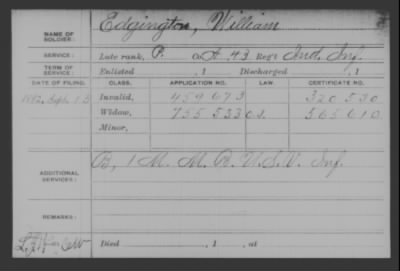 NAME OF SOLDIER: Edgington, William
SERVICE: Late rank, P. Co. A, 43 Reg't Ind. Inf.
TERM OF SERVICE: Enlisted , 1 Discharged , 1
DATE OF FILING. CLASS. APPLICATION NO. LAW. CERTIFICATE NO.
1882, Sept. Invalid, 459 673 320 530
Widow, 755 533 O.L. 565 610
Minor,
ADDITIONAL SERVICES: B, 1 M. M. B. U.S.V. Inf.
REMARKS:
Died , 1 , at